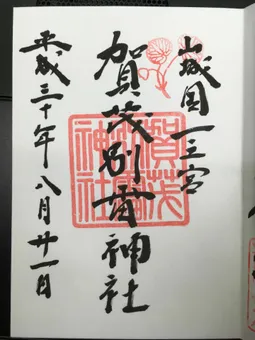 山城国一之宮
賀茂別雷神社
平成三十年八月廿一日
賀茂
神社